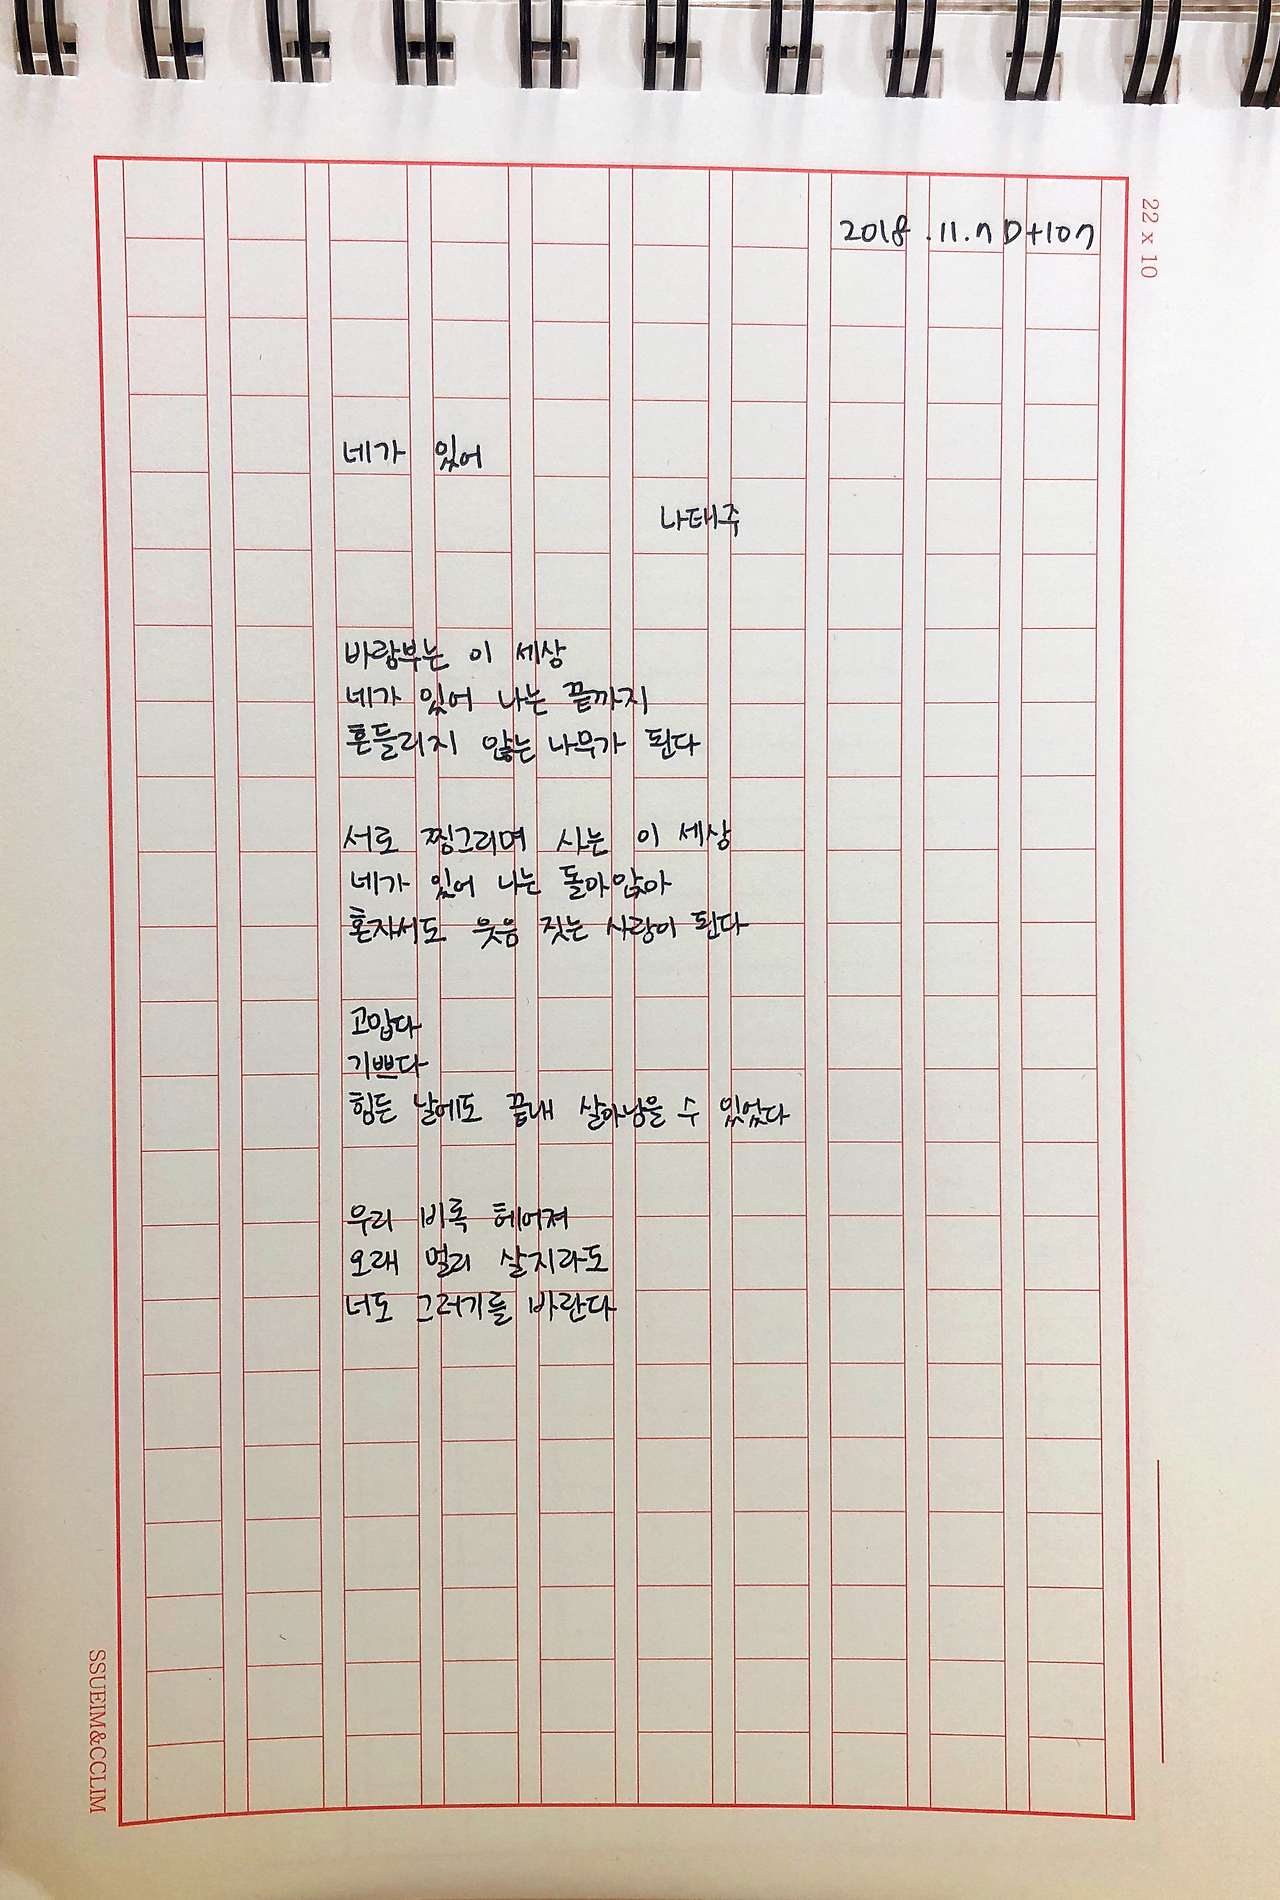 2018.11.7 D+107
22 x 10
네가 있어
나태주
바람부는 이 세상
네가 있어 나는 끝까지
흔들리지 않는 나무가 된다
서로 찡그리며 사는 이 세상
네가 있어 나는 돌아앉아
혼자서도 웃음 짓는 사람이 된다
고맙다
기쁘다
힘든 날에도 끝내 살아남을 수 있었다
우리 비록 헤어져
오래 멀리 살지라도
너도 그러기를 바란다
SSUEIM&CCLIM